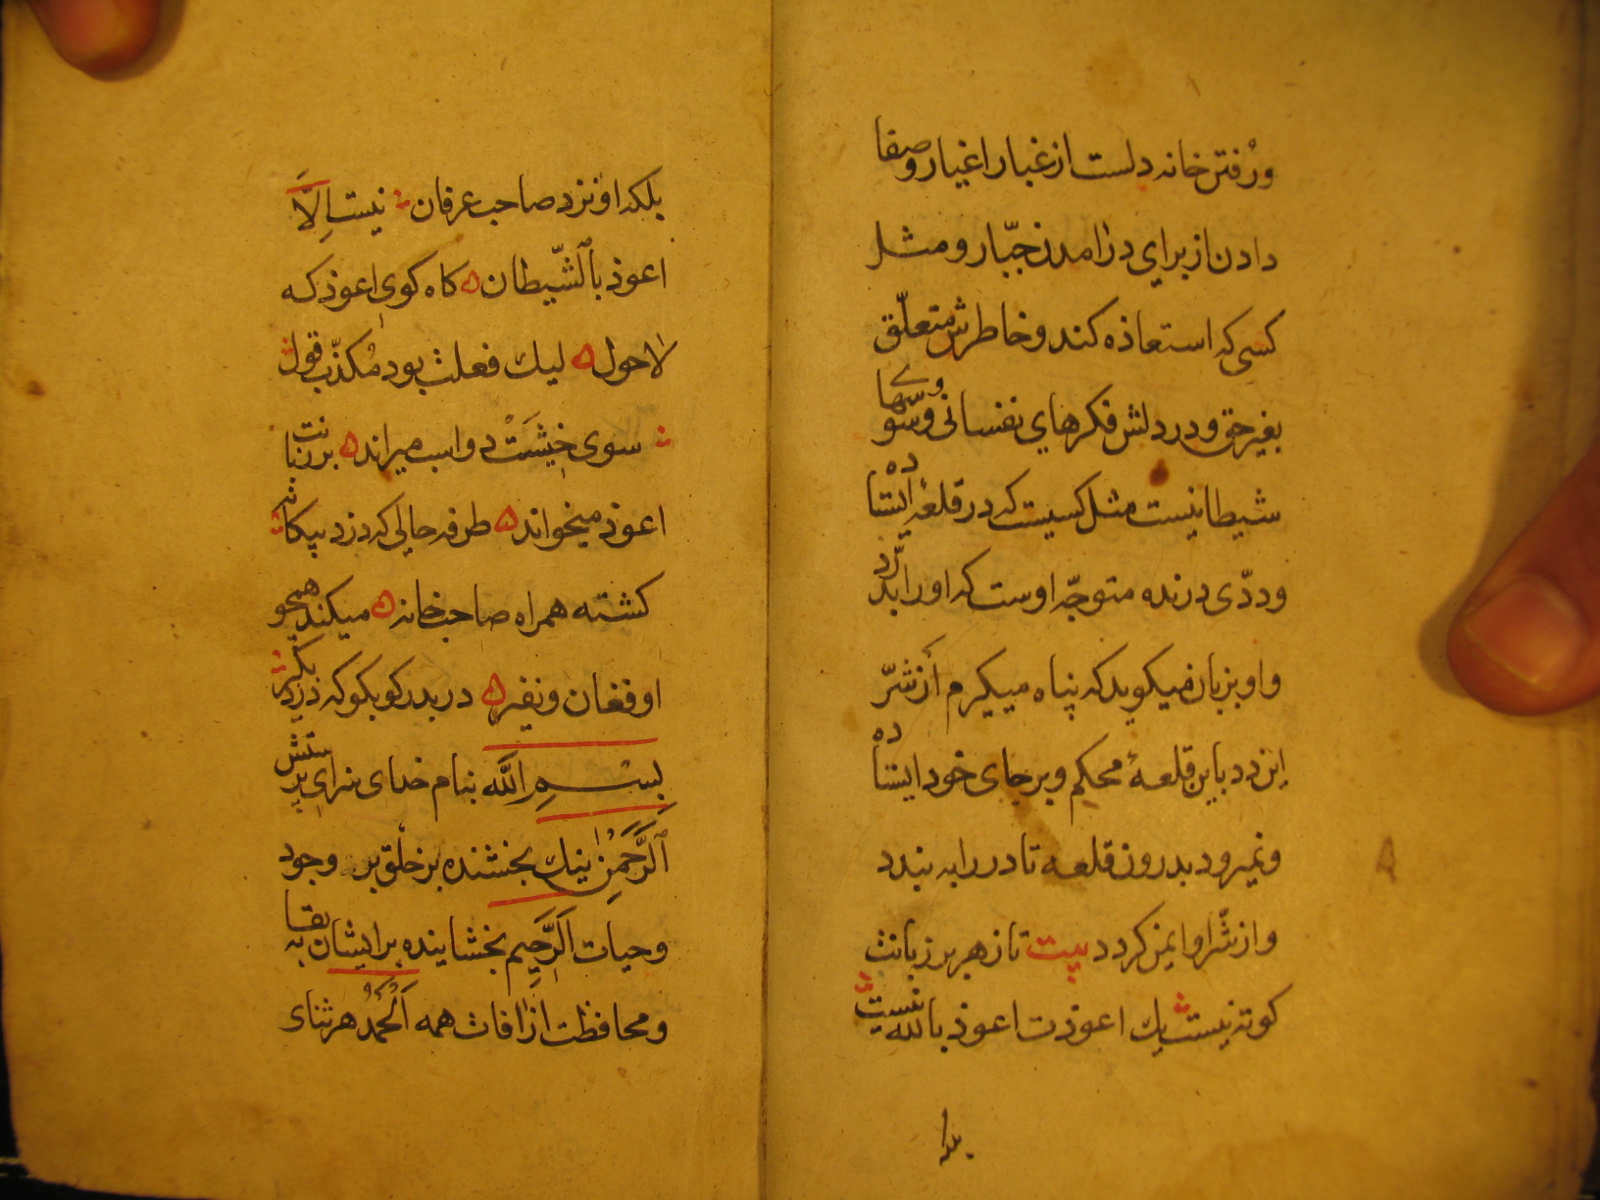 ورُفتن خانه دلست از غبار اغیار و صفا
دادن از برای درآمدن جبّار و مثل
کسی که استعاذه کند و خاطرش متعلّق
بغیر حق و در دلش فکرهای نفسانی و وسوسهای
شیطانیست مثل کسیست که در قلعهٔ ایستاده
و ددّی درنده متوجّه اوست که او را بدرّد
و او بزبان میکوید که پناه میکیرم از شرّ
این دد باین قلعهٔ محکم و بر جای خود ایستاده
و نمیرود بدرون قلعه تا در را به بندد
و از شرّ او ایمن کردد بیت تا ز هر بر زبانت
کوته نیست یک اعوذت اعوذ بالله نیست
بلکه
بلکه او نزد صاحب عرفان نیست اِلّا
اعوذ بالشّیطان کاه کوی اعوذ که
لاحول لیک فعلت بود مُکذّب قول
سوی خیشَتْ دو اسب میراند بر زبانت
اعوذ میخواند طرفه حالی که دزد بیکانه
کشته همراه صاحب خانه میکند همچو
او فغان و نفیر در بدر کو بکو که دزد بکیر
بسم الله بنام خدای سزای پرستش
اَلرَّحمٰنِ نیک بخشنده بر خلق بر وجود
و حیات اَلرَّحِیم بخشاینده بر ایشان به بقا
و محافظت از آفات همه اَلْحَمْدُ هر ثنای